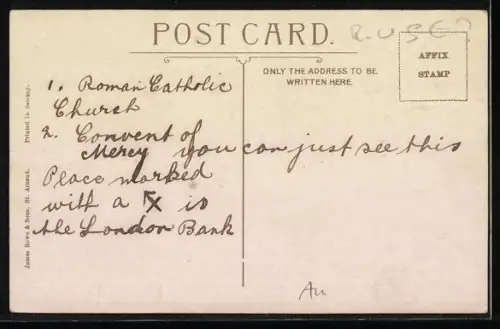 POST CARD.
ONLY THE ADDRESS TO BE
WRITTEN HERE.
AFFIX
STAMP
1. Roman Catholic
Church
2. Convent of
Mercy you can just see this
Place marked
with a X is
the London Bank
Printed in Saxony.
James Rowe & Sons, St. Arnaud.
Au